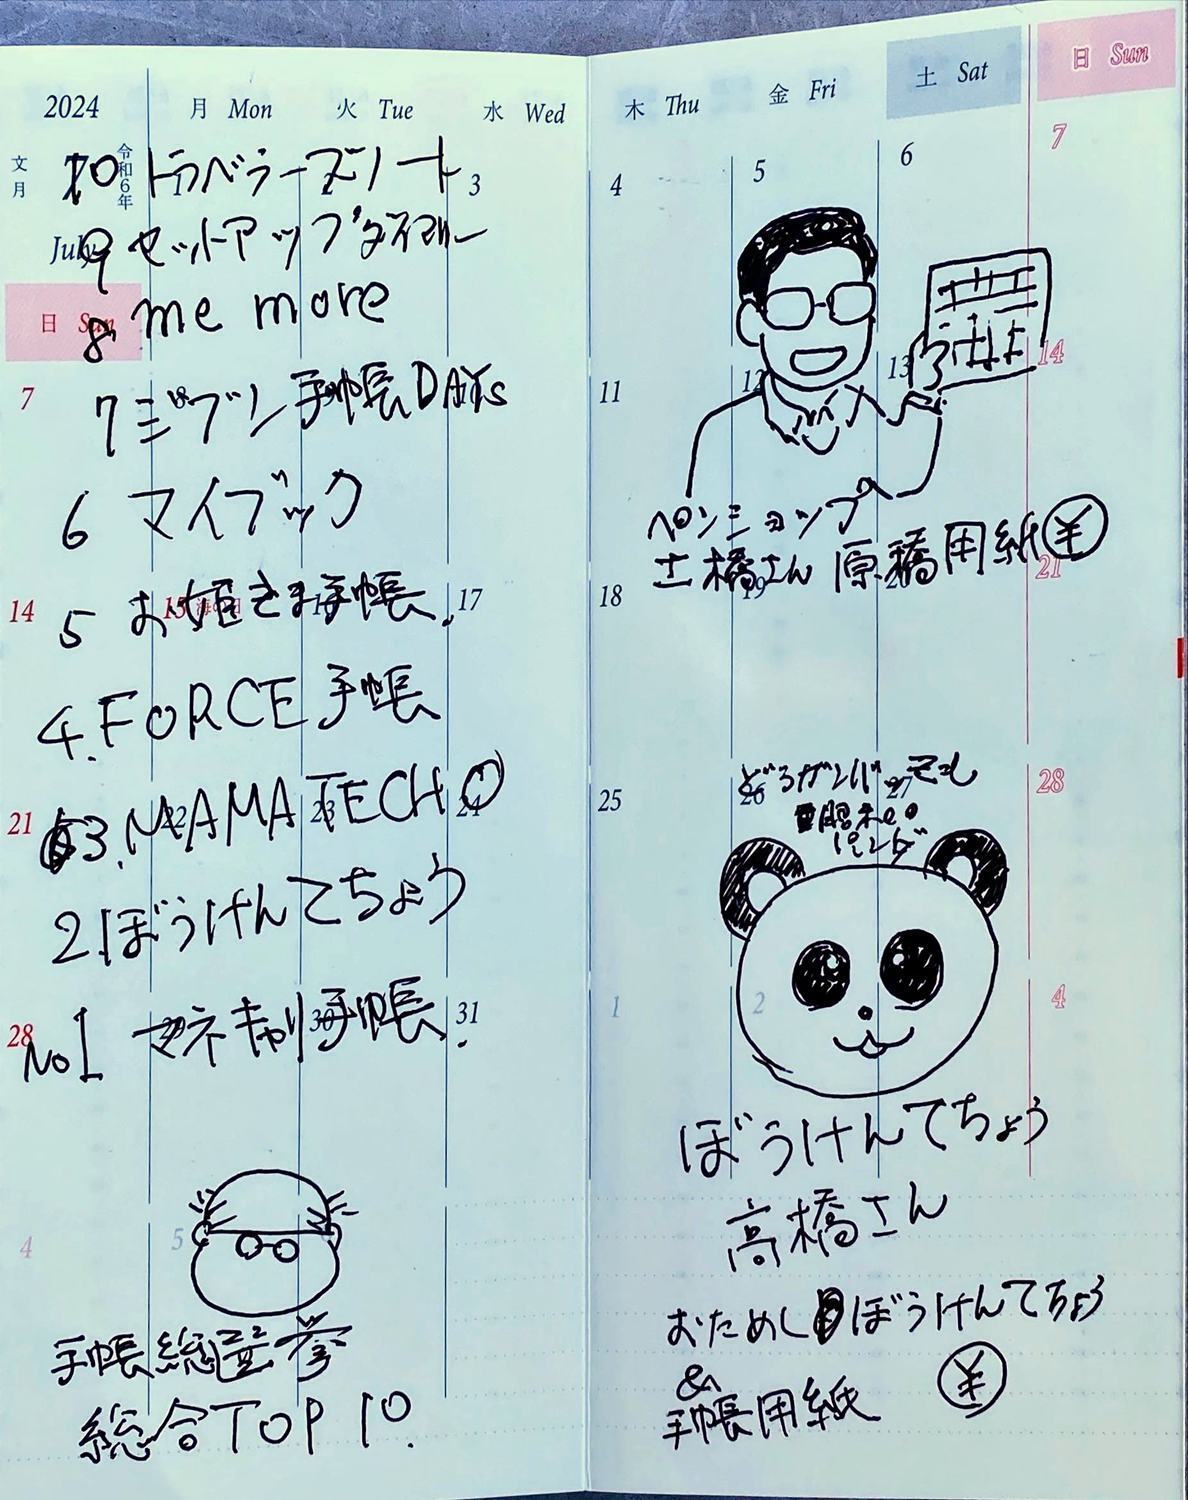 2024
月 Mon
火 Tue
水 Wed
文月
令和6年
July
日 Sun
10 トラベラーズノート
3
9 セットアップダイアリー
8 me more
7
7 ジブン手帳DAYs
8
6 マイブック
14
15 海の日
17
5 お姫さま手帳.
4. FORCE 手帳
21
22
23
24
3. MAMA TECHO
2. ぼうけんてちょう
28
30
31
No1 マネキャリ手帳.
4
5
手帳総選挙
総合TOP 10.
木 Thu
金 Fri
土 Sat
日 Sun
4
5
6
7
11
12
13
14
ペンショップ
土橋さん 原稿用紙 ¥
18
19
20
21
25
26
27
28
パンダ
1
2
4
ぼうけんてちょう
高橋さん
おためしぼうけんてちょう
&
手帳用紙 ¥